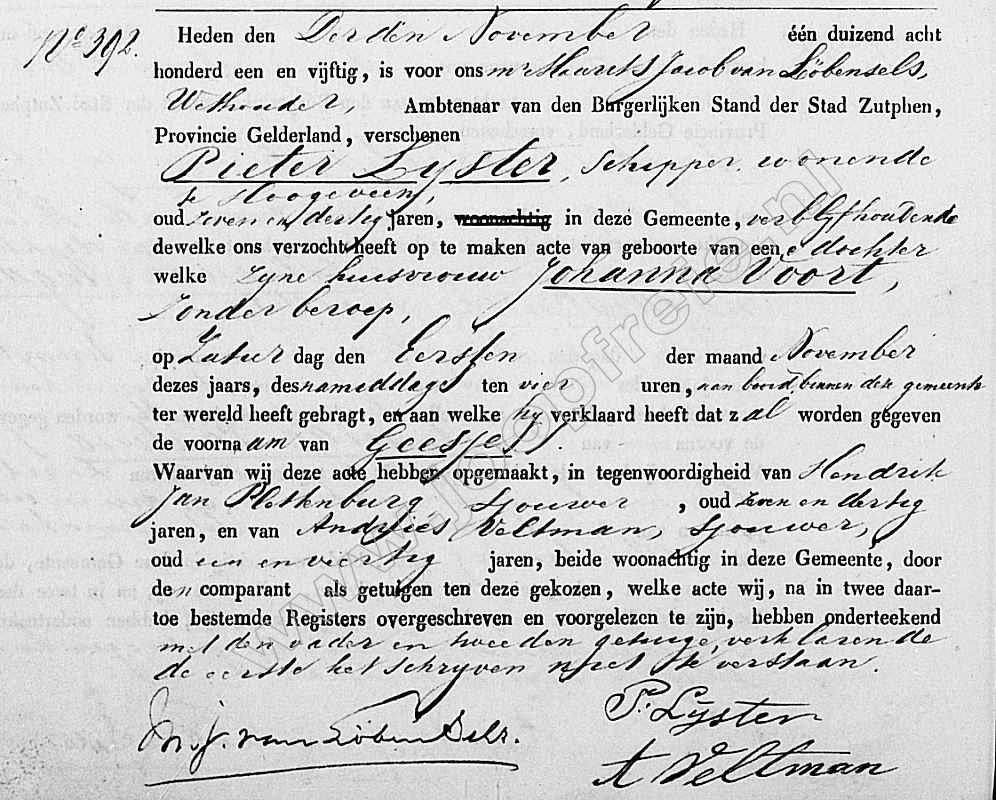 No 392.
Heden den Derden November één duizend acht
honderd een en vijftig, is voor ons mr Maurits Jacob van Löbensels,
Wethouder, Ambtenaar van den Burgerlijken Stand der Stad Zutphen,
Provincie Gelderland, verschenen
Pieter Lyster, Schipper, wonende
te Hoogeveen,
oud zeven en dertig jaren, woonachtig in deze Gemeente, verblyfhoudende
dewelke ons verzocht heeft op te maken acte van geboorte van een e dochter
welke zyne huisvrouw Johanna Voort,
zonder beroep,
op Zatur dag den Eersten der maand November
dezes jaars, des namiddags ten vier uren, aan boord, binnen deze gemeente
ter wereld heeft gebragt, en aan welke hy verklaard heeft dat z al worden gegeven
de voorna am van Geesje.
Waarvan wij deze acte hebben opgemaakt, in tegenwoordigheid van Hendrik
Jan Plekenburg sjouwer, oud zeven en dertig
jaren, en van Andries Veltman, sjouwer,
oud een en veertig jaren, beide woonachtig in deze Gemeente, door
den comparant als getuigen ten deze gekozen, welke acte wij, na in twee daar-
toe bestemde Registers overgeschreven en voorgelezen te zijn, hebben onderteekend
met den vader en tweeden getuige, verklarende
de eerste het schryven niet te verstaan.
M.J. van Löben Sels.
P. Lÿster
A Veltman
www.jooofreie.nl